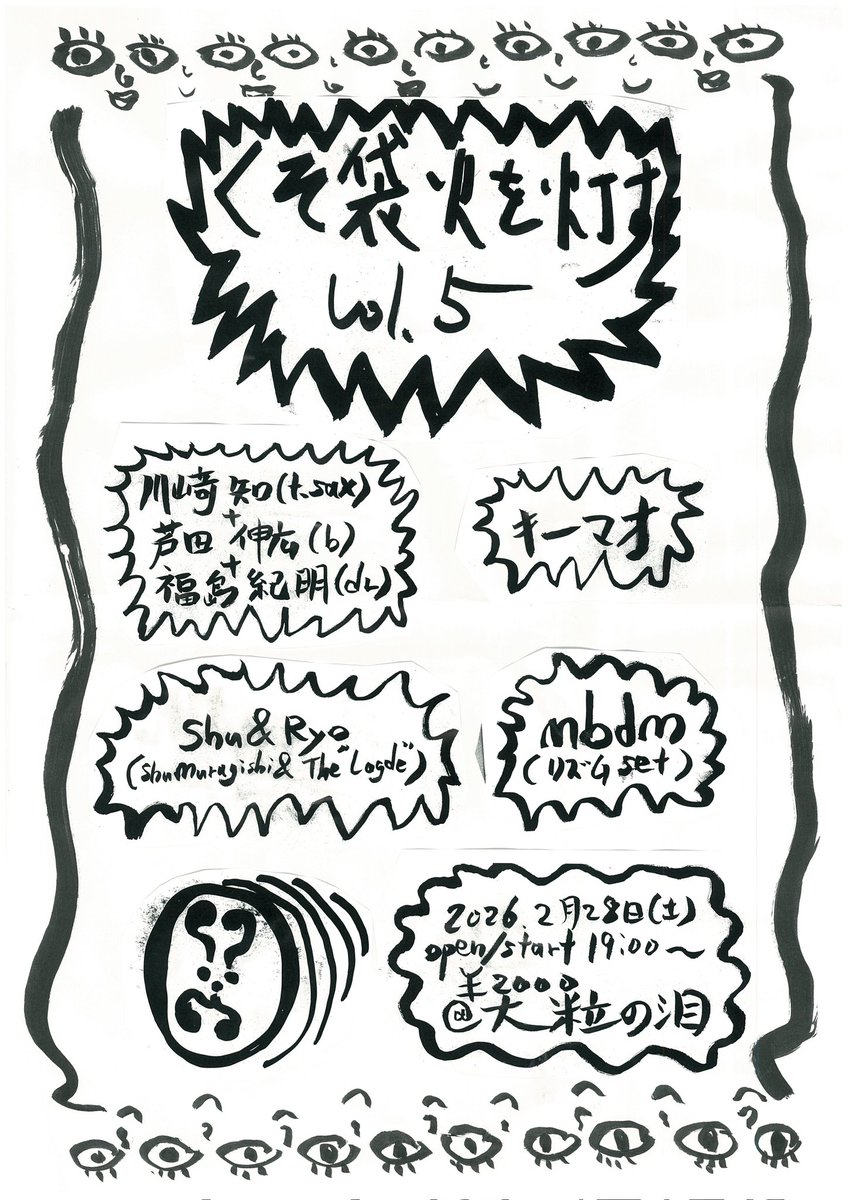 くそ袋 火を灯す
vol.5
川崎 知(t.sax)
+
芦田 伸広(b)
+
福島 紀明(dr)
キーマオ
Shu & Ryo
(Shu Muragishi & The "Logde")
mbdm
(リズム set)
??
2026.2月28日(土)
open/start 19:00〜
¥2000
@大粒の泪